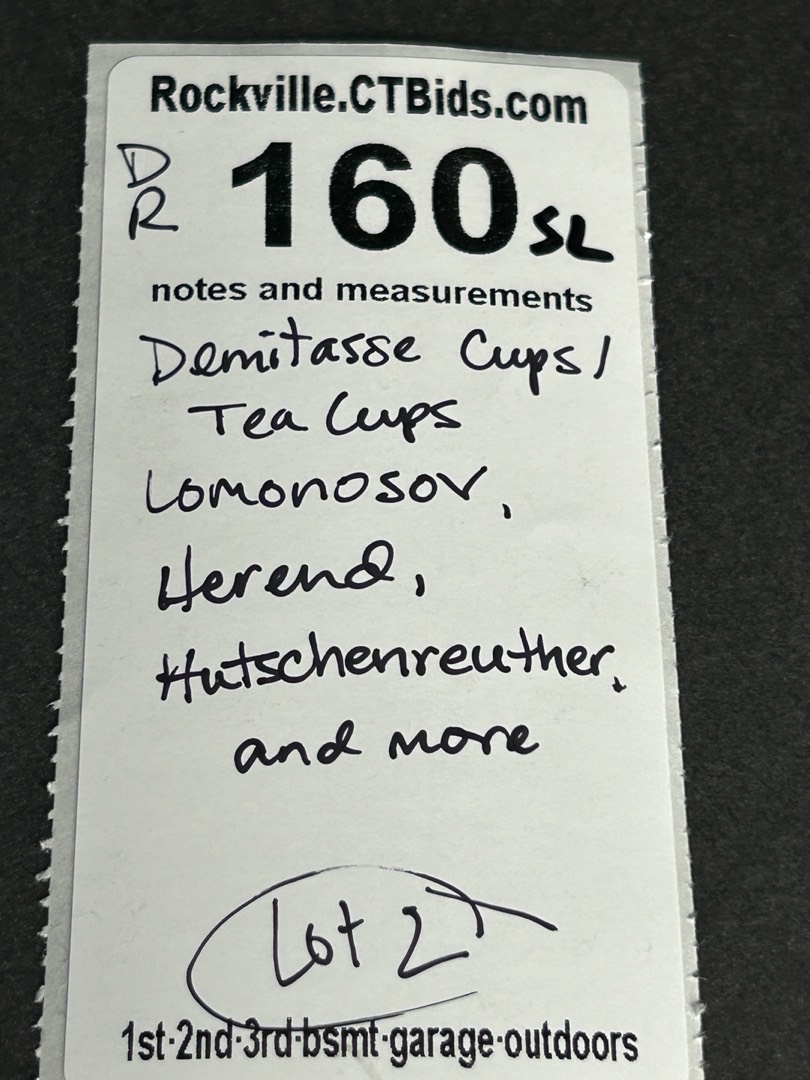 Rockville.CTBids.com
DR 160 SL
notes and measurements
Demitasse Cups/
Tea Cups
Lomonosov,
Herend,
Hutschenreuther,
and more
Lot 2
1st-2nd-3rd-bsmt-garage-outdoors